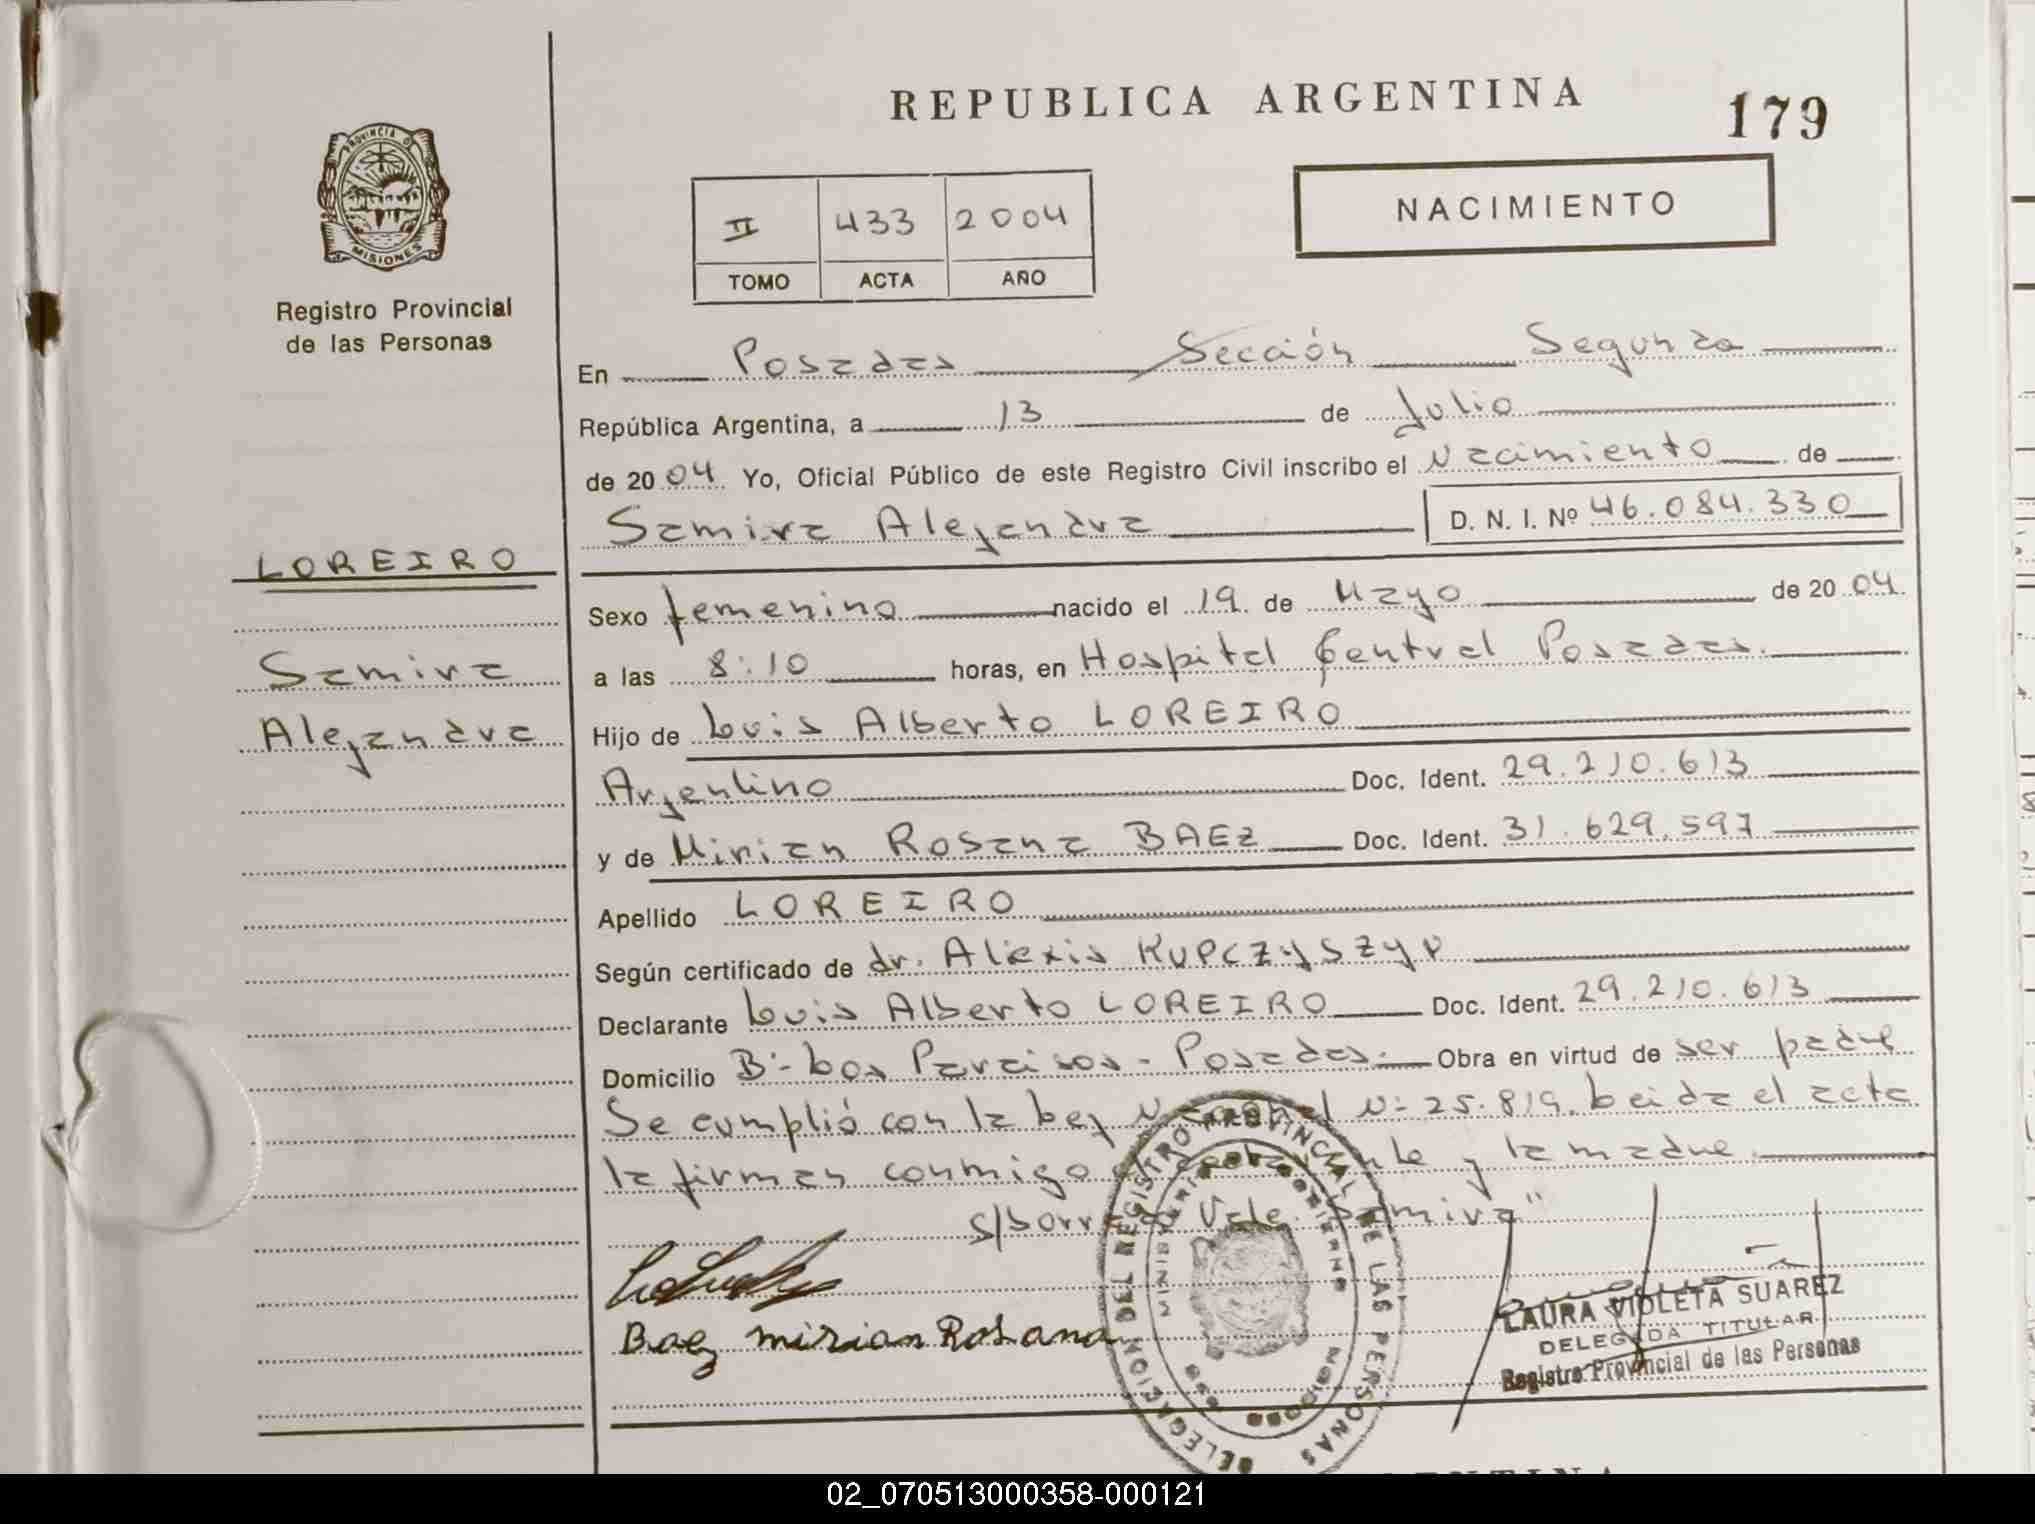 REPUBLICA ARGENTINA
179
PROVINCIA DE
MISIONES
Registro Provincial
de las Personas
II 433 2004
TOMO ACTA AÑO
NACIMIENTO
En Posadas Sección Segunda
República Argentina, a 13 de Julio
de 2004 Yo, Oficial Público de este Registro Civil inscribo el Nacimiento de
Samira Alejandra D. N. I. Nº 46.084.330
LOREIRO
Samira
Alejandra
Sexo femenino nacido el 19 de Mayo de 2004.
a las 8:10 horas, en Hospital Central Posadas.
Hijo de Luis Alberto LOREIRO
Argentino Doc. Ident. 29.210.613
y de Mirian Rosana BAEZ Doc. Ident. 31.629.597
Apellido LOREIRO
Según certificado de dr. Alexis KUPCZYSZYN
Declarante Luis Alberto LOREIRO Doc. Ident. 29.210.613
Domicilio Bº Los Paraisos - Posadas. Obra en virtud de ser padre
Se cumplió con la Ley Nacional Nº 25.819. Leida el acta
la firman conmigo y la madre
Vale. "Samira"
Baez mirian Rosana
DELEGACION DEL REGISTRO PROVINCIAL DE LAS PERSONAS
LAURA VIOLETA SUAREZ
DELEGADA TITULAR
Registro Provincial de las Personas
02_070513000358-000121